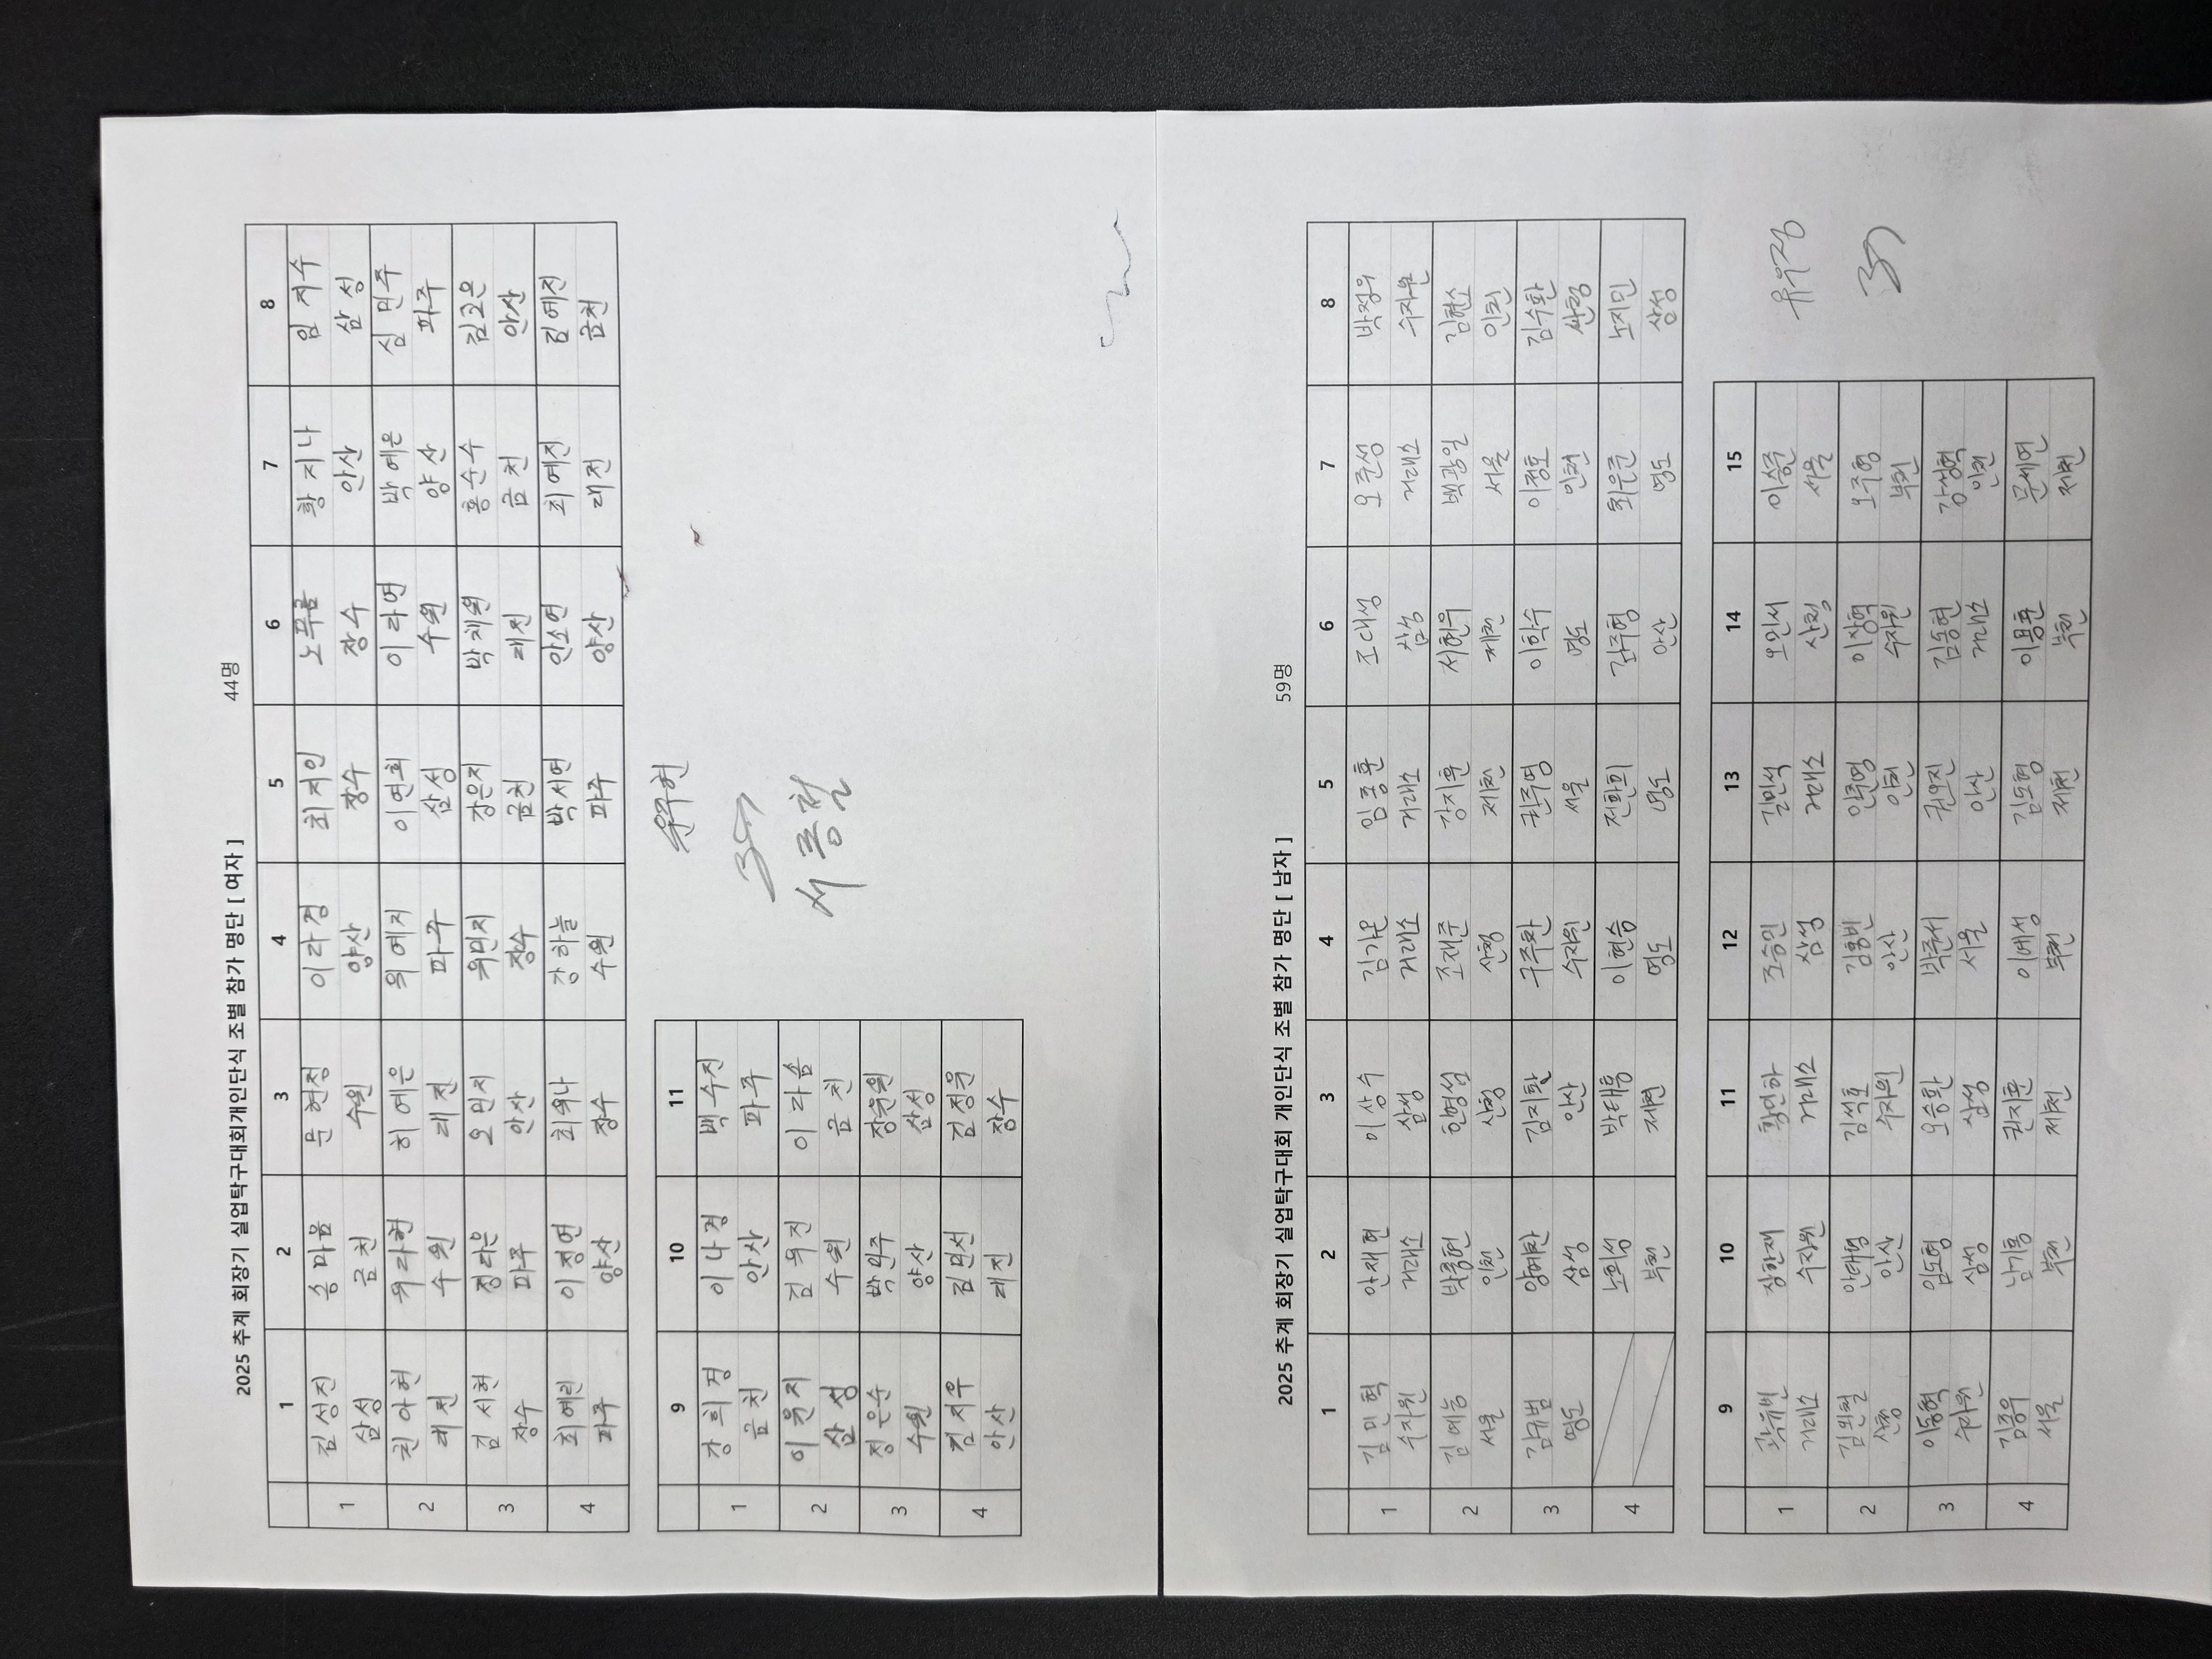 2025 추계 회장기 실업탁구대회개인단식 조별 참가 명단 [ 여자 ] 44명
1 2 3 4 5 6 7 8
1 김성진 송마음 문현정 이라경 최지인 노푸름 황지나 임지수
삼성 금천 수원 양산 장수 장수 안산 삼성
2 천아현 유다현 허예은 위예지 이연희 이라연 박예은 심민주
대전 수원 대전 파주 삼성 수원 양산 파주
3 김서현 정다은 오민지 유민지 강은지 박채원 홍순수 김고은
장수 파주 안산 장수 금천 대전 금천 안산
4 최예린 이정연 최유나 강하늘 박서연 안소연 최예진 김예진
파주 양산 장수 수원 파주 양산 대전 금천
9 10 11
1 강희경 이나경 백수진
금천 안산 파주
2 이윤지 김유진 이다솜
삼성 수원 금천
3 정은수 박민주 장윤원
수원 양산 삼성
4 김지우 김민서 김정원
안산 대전 장수
2025 추계 회장기 실업탁구대회 개인단식 조별 참가 명단 [ 남자 ] 59명
1 2 3 4 5 6 7 8
1 김민혁 안재현 이상수 김가온 임종훈 조대성 오준성 박정우
수자원 거래소 삼성 거래소 거래소 삼성 거래소 수자원
2 김예능 박종현 천명성 조재준 강지훈 서현우 백광일 김현소
서울 인천 산청 산청 제천 제천 서울 인천
3 김규범 양예찬 김지환 구주환 권주영 이학수 이정호 김수환
영도 삼성 안산 수자원 서울 영도 인천 산청
4 노희성 박태홍 이현승 전환희 김주형 최은준 노지민
부천 제천 영도 영도 안산 영도 삼성
9 10 11 12 13 14 15
1 곽유빈 장한재 황민하 조승민 길민석 오민서 이승준
거래소 수자원 거래소 삼성 거래소 산청 서울
2 김민철 안태영 김석호 김홍빈 인주영 이장혁 오주형
산청 안산 수자원 안산 인천 수자원 부천
3 이동혁 임도형 오승환 박준서 권오진 김동현 강성혁
수자원 삼성 삼성 서울 안산 거래소 인천
4 김종우 남기홍 권지훈 이예성 김도형 이용훈 문세연
서울 부천 제천 부천 제천 부천 제천